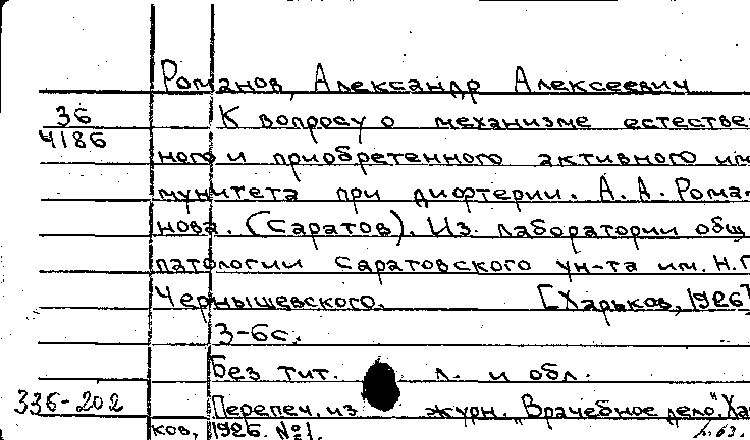 Романов, Александр Алексеевич
36
4186
К вопросу о механизме естестве
ного и приобретенного активного им
мунитета при дифтерии. А. А. Рома-
нова. (Саратов). Из лаборатории общ
патологии Саратовского ун-та им. Н.Г
Чернышевского. [Харьков, 1926]
3-6с.
Без тит. л. и обл.
336-202
Перепеч. из журн. "Врачебное дело". Ха
ков, 1926. №1.